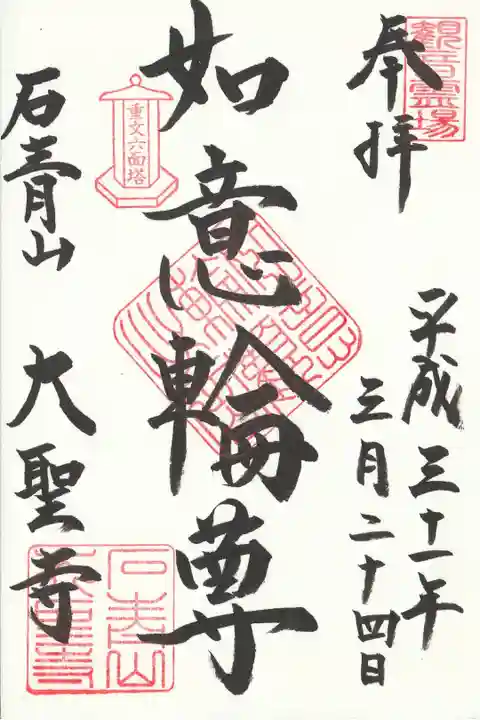 観音霊場
奉拝
平成三十一年
三月二十四日
如意輪尊
重文六面塔
石青山 大聖寺
石青山
大聖寺